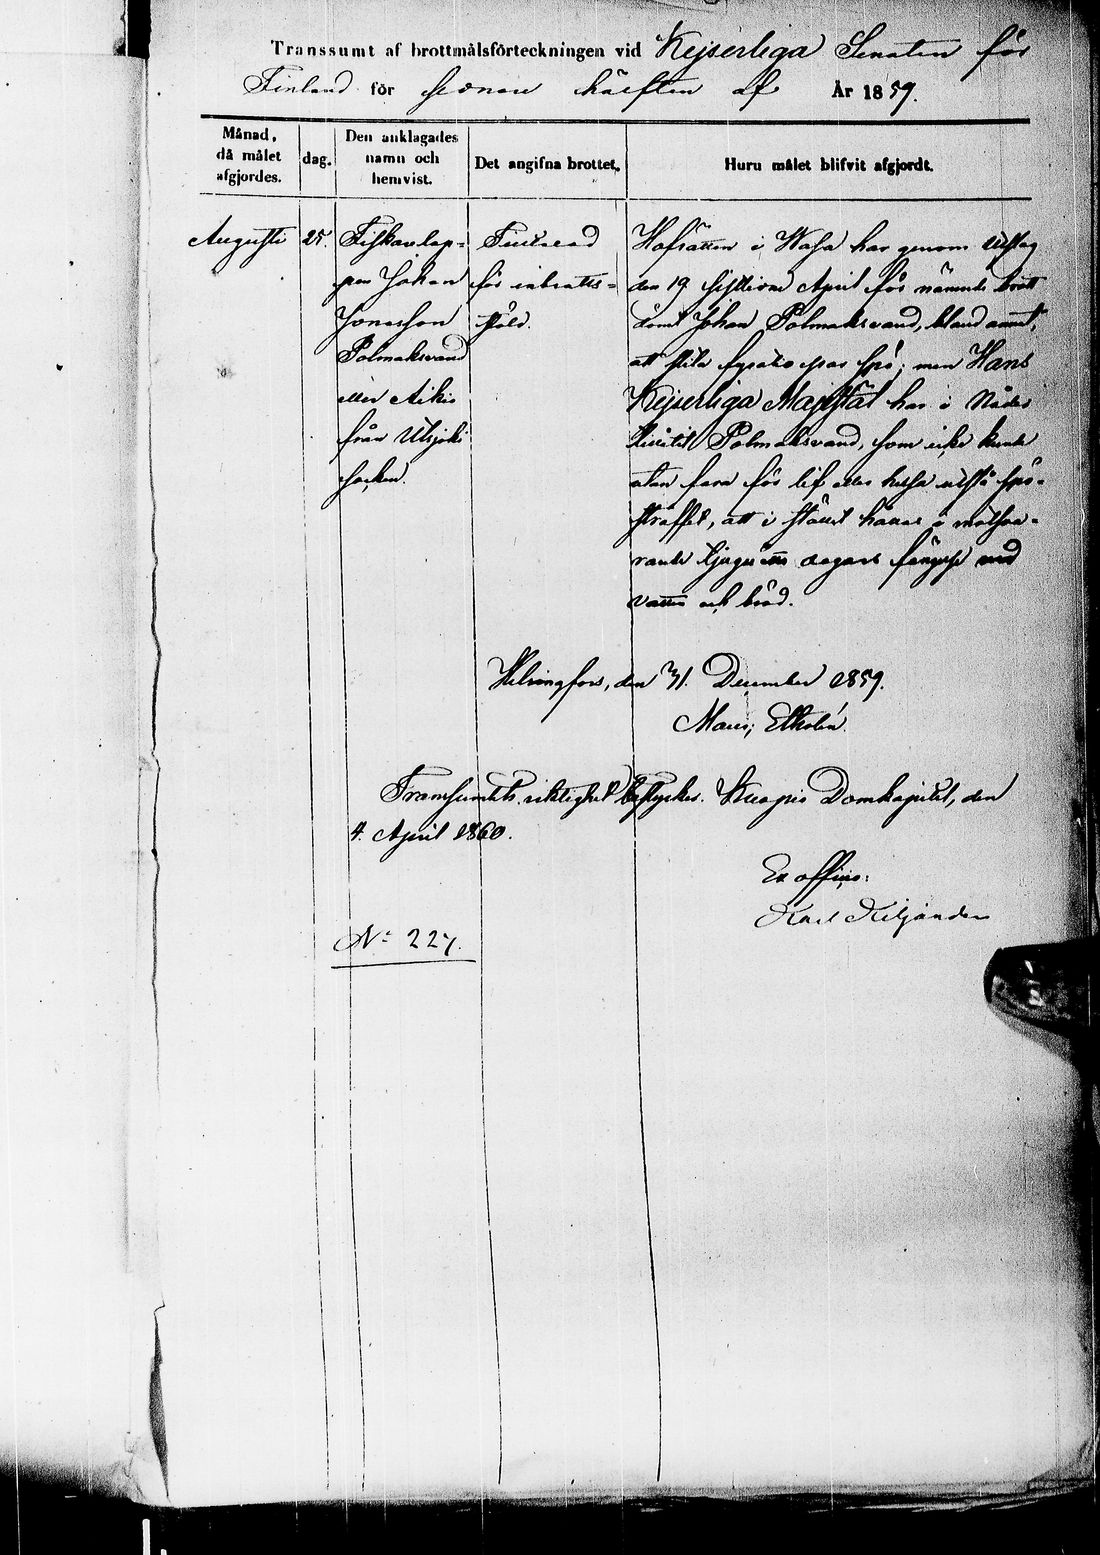 Transsumt af brottmålsförteckningen vid Kejserliga Senaten för
Finland för senare hälften af År 1859.
Månad, då målet afgjordes.
dag.
Den anklagades namn och hemvist.
Det angifna brottet.
Huru målet blifvit afgjordt.
Augusti
25.
Fiskarlap-
pen Johan
Jonasson
Polmaksvand
eller Aikio
från Utsjoki
socken.
Tilltalad
för inbrotts-
stöld.
Hofrätten i Wasa har genom Utslag
den 19 sistlidne April för nämnde brott
dömt Johan Polmaksvand, bland annat,
att slita fyratio par spö; men Hans
Kejserliga Majestät har i Nåder
tillåtit Polmaksvand, som icke kunde
utan fara för lif eller helsa utstå spö-
straffet, att i stället hållas i motsva-
rande tjuguåtta dagars fängelse vid
vatten och bröd.
Helsingfors, den 31. December 1859.
Maur: Etholén.
Transsumtets riktighet bestyrker. Kuopio Domkapitel, den
4. April 1860.
Ex officio:
Karl Kiljander
No 227.